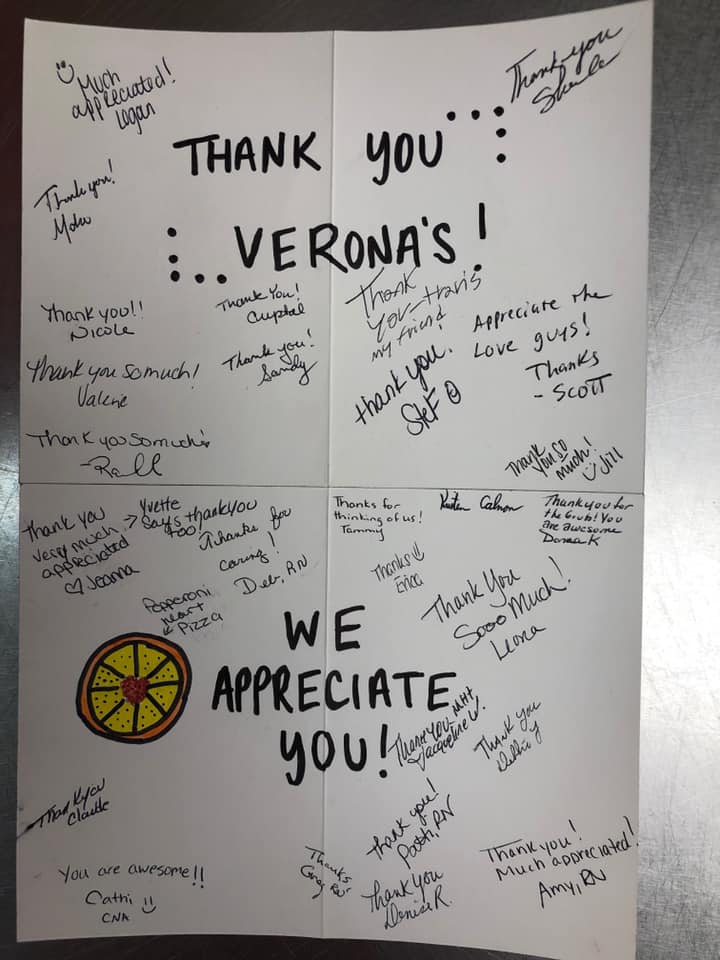 Much
appreciated!
Logan
Thank you
THANK YOU...
Thank you!
..VERONA'S!
Thank you!!
Nicole
Thank You!
Crystal
Thank
you-travis
my friend
Appreciate the
Love guys!
Thanks
- Scott
Thank you so much!
Valerie
Thank you!
Sandy
thank you.
Stef
Thank you so much!
Thank
you so
much!
Jill
Thank you
very much
appreciated
♡ Jeanna
→ Yvette
says thank you
too!
Thanks for
caring!
Deb, RN
Thanks for
thinking of us!
Tammy
Thanks
Erica
Thank you for
the Grub! You
are awesome
Donna K
Thank You
Sooo Much!
Leona
Pepperoni
heart
Pizza
WE
APPRECIATE
YOU!
Thank you
Jacqueline W.
Thank you
Debbie Y
Thank you
You are awesome!!
Cathi
CNA
Thanks
Thank you!
RN
Thank you
Denise R.
Thank you!
Much appreciated!
Amy, RN